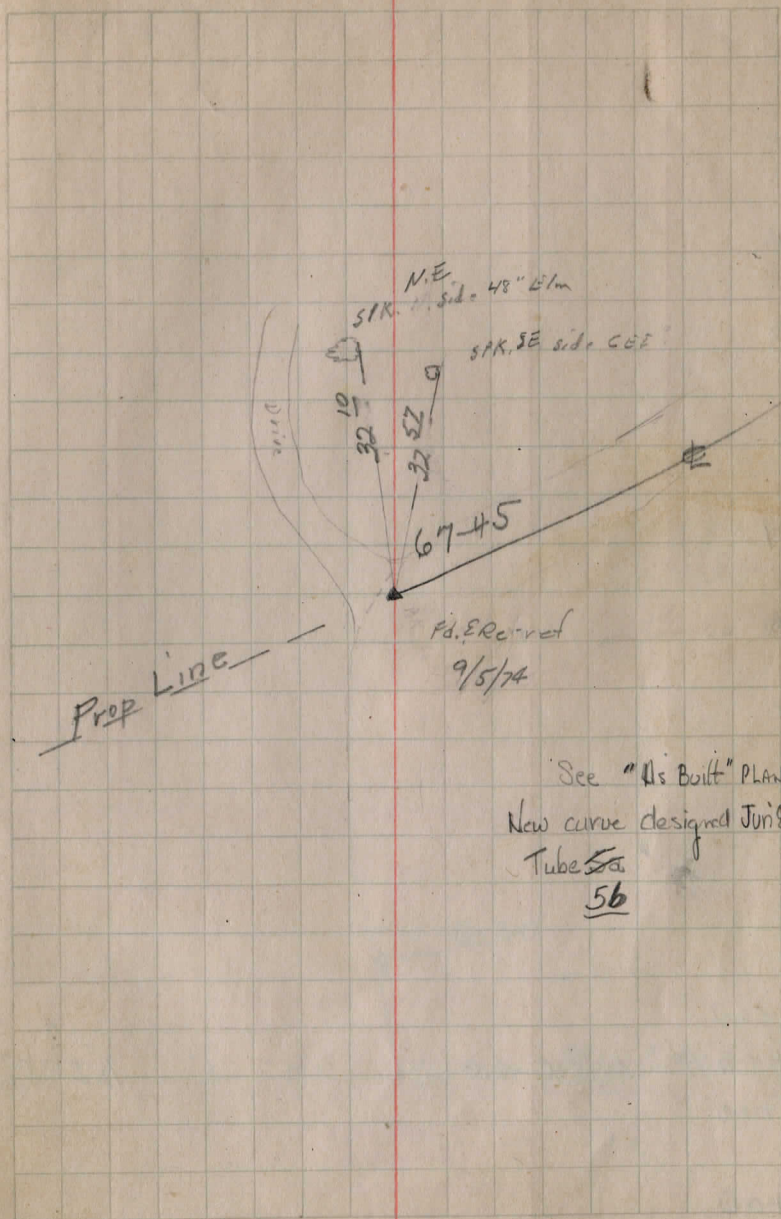 N.E.
SPK. N. side 48" Elm
SPK. SE side CEI
Drive
32 10
32 52
67-45
Fd. & Re-ref
9/5/74
Prop Line
See "As Built" PLAN
New curve designed Jun 8
Tube 5a
5b